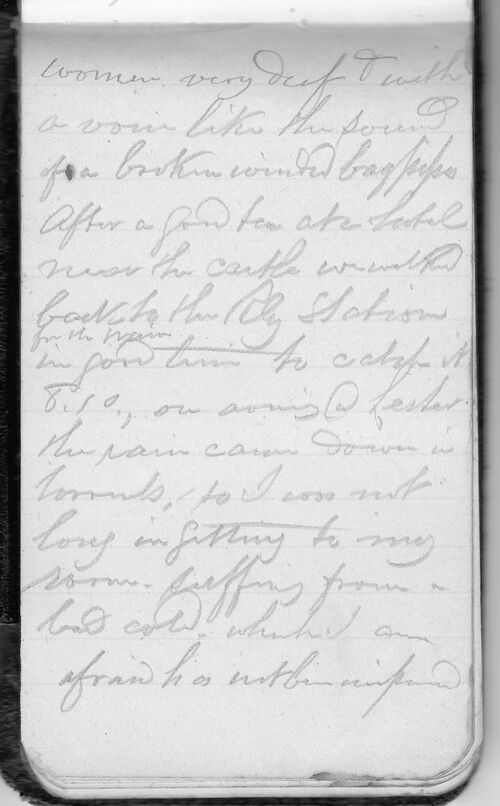 women very deaf & with
a voice like the sound
of a broken winded bagpipe
After a good tea at a hotel
near the castle we walked
back to the Rly Station
for the train
in good time to catch it
8.10., on arriving @
the rain came down in
torrents, so I was not
long in getting to my
room. suffering from a
bad cold. which I am
afraid has not been improved